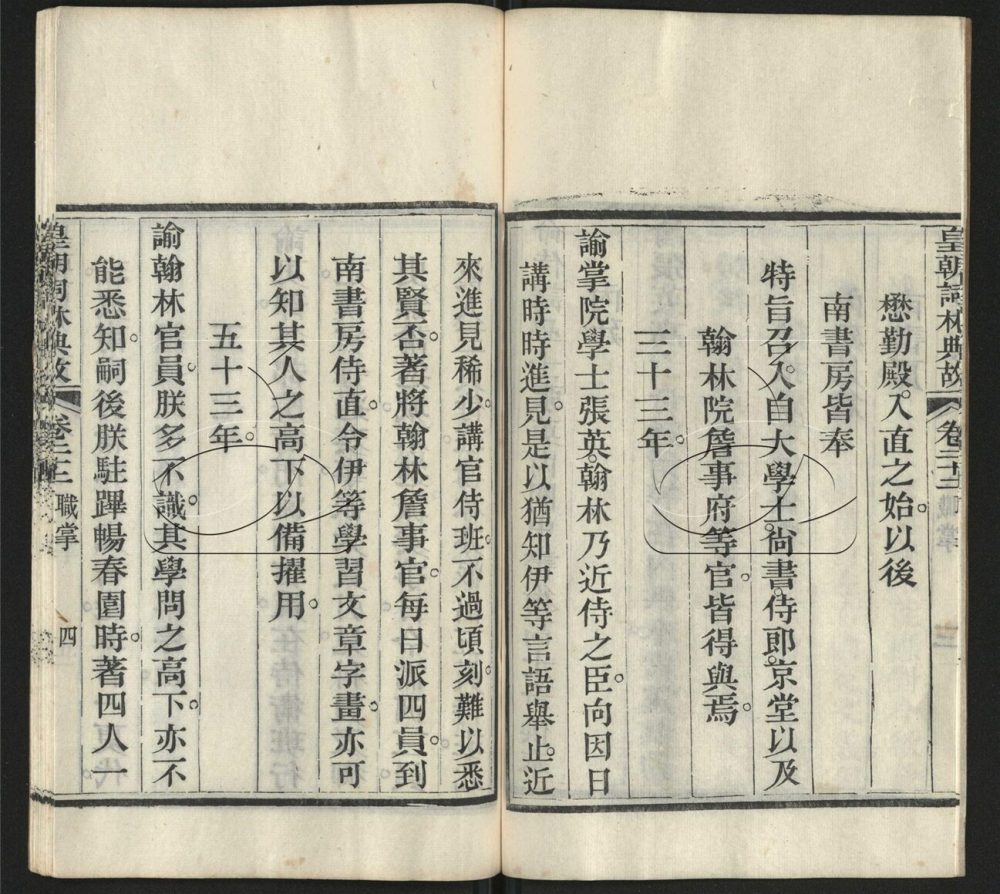 皇朝詞林典故 卷二十二 職掌 三
懋勤殿。入直之始。以後
南書房皆奉
特旨召入。自大學士。尙書。侍郎。京堂以及
翰林院詹事府等官。皆得與焉。
三十三年。
諭掌院學士張英。翰林乃近侍之臣。向因日
講時時進見。是以猶知伊等言語舉止。近
來進見稀少。講官侍班。不過頃刻。難以悉
其賢否。著將翰林詹事官。每日派四員。到
南書房侍直。令伊等學習文章字畫。亦可
以知其人之高下。以備擢用。
五十三年。
諭翰林官員。朕多不識。其學問之高下。亦不
能悉知。嗣後朕駐蹕暢春園時。著四人一
皇朝詞林典故 卷二十二 職掌 四